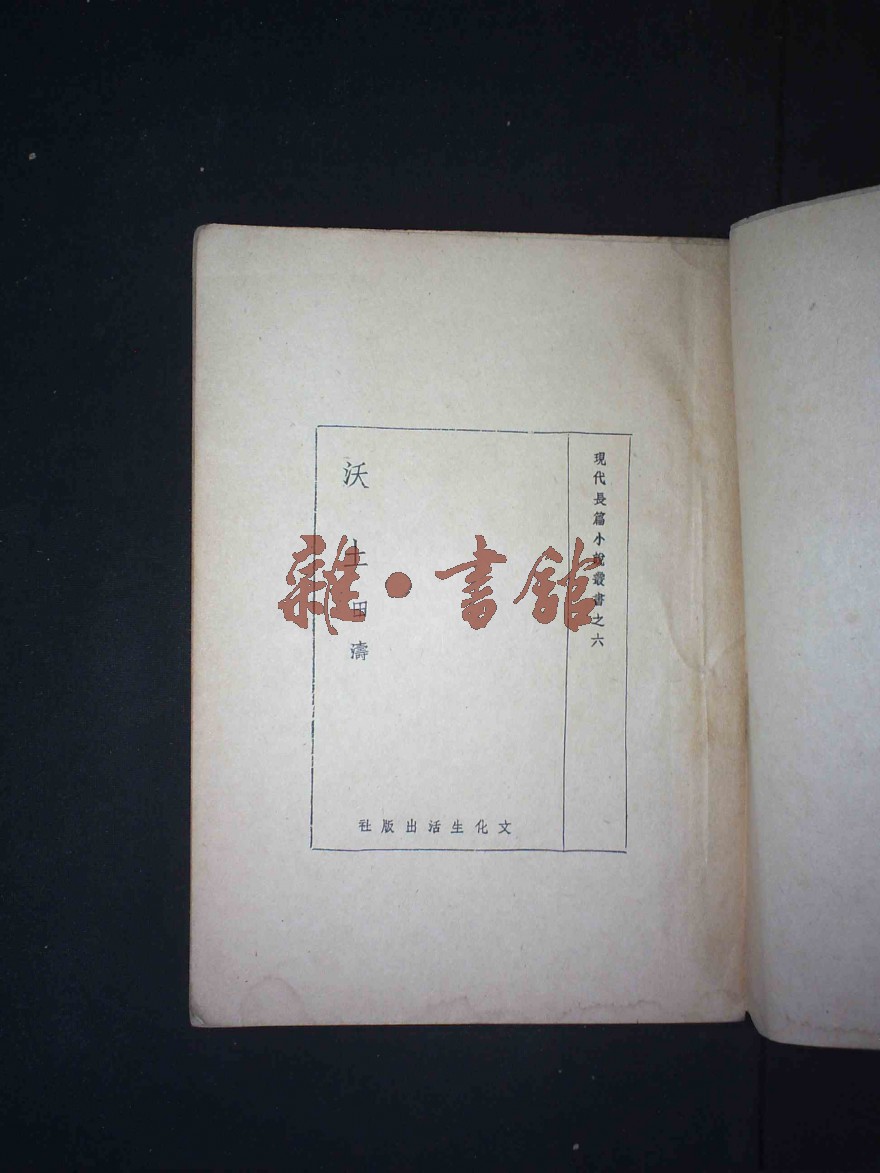 現代長篇小說叢書之六
沃土
田濤
文化生活出版社
雜·書館